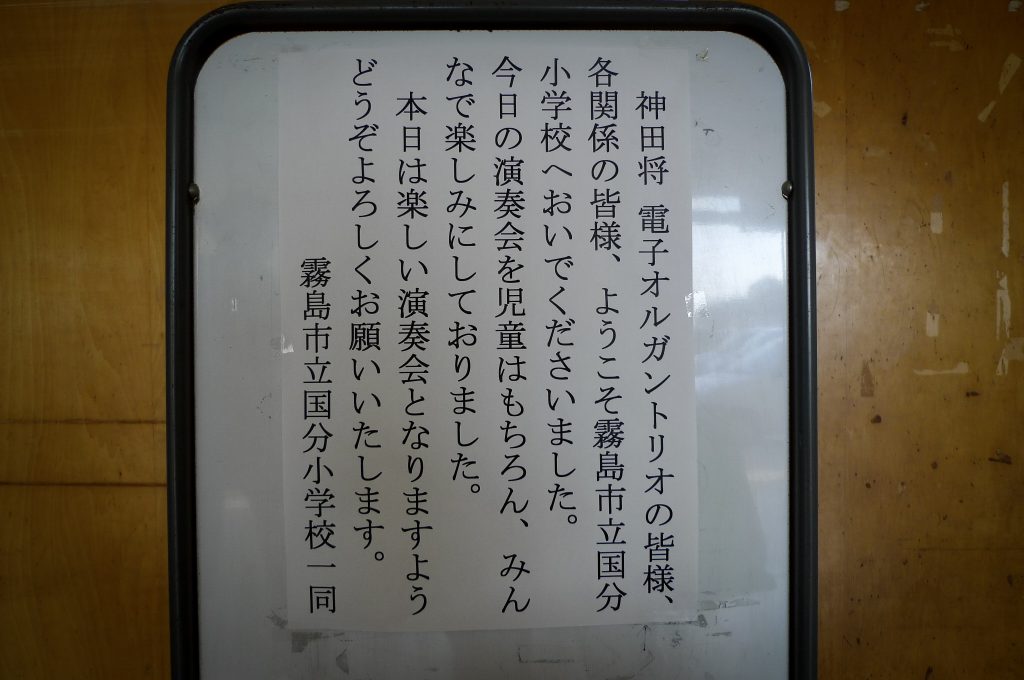 神田将 電子オルガントリオの皆様、
各関係の皆様、ようこそ霧島市立国分
小学校へおいでくださいました。
今日の演奏会を児童はもちろん、みん
なで楽しみにしておりました。
本日は楽しい演奏会となりますよう
どうぞよろしくお願いいたします。
霧島市立国分小学校一同